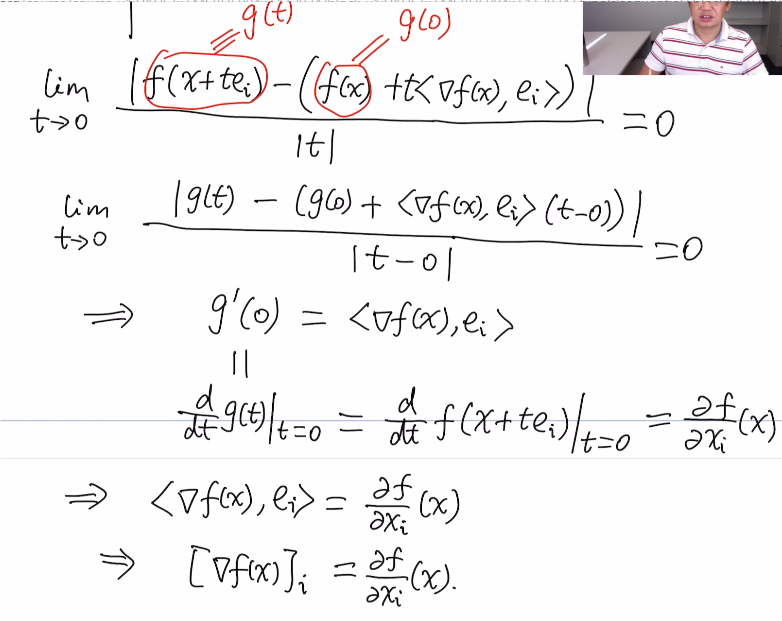 g(t) g(0)
lim t→0 |f(x+te_i) - (f(x) + t<∇f(x), e_i>)| / |t| = 0
lim t→0 |g(t) - (g(0) + <∇f(x), e_i>(t-0))| / |t-0| = 0
⇒ g'(0) = <∇f(x), e_i>
||
d/dt g(t)|_{t=0} = d/dt f(x+te_i)|_{t=0} = ∂f/∂x_i (x)
⇒ <∇f(x), e_i> = ∂f/∂x_i (x)
⇒ [∇f(x)]_i = ∂f/∂x_i (x).